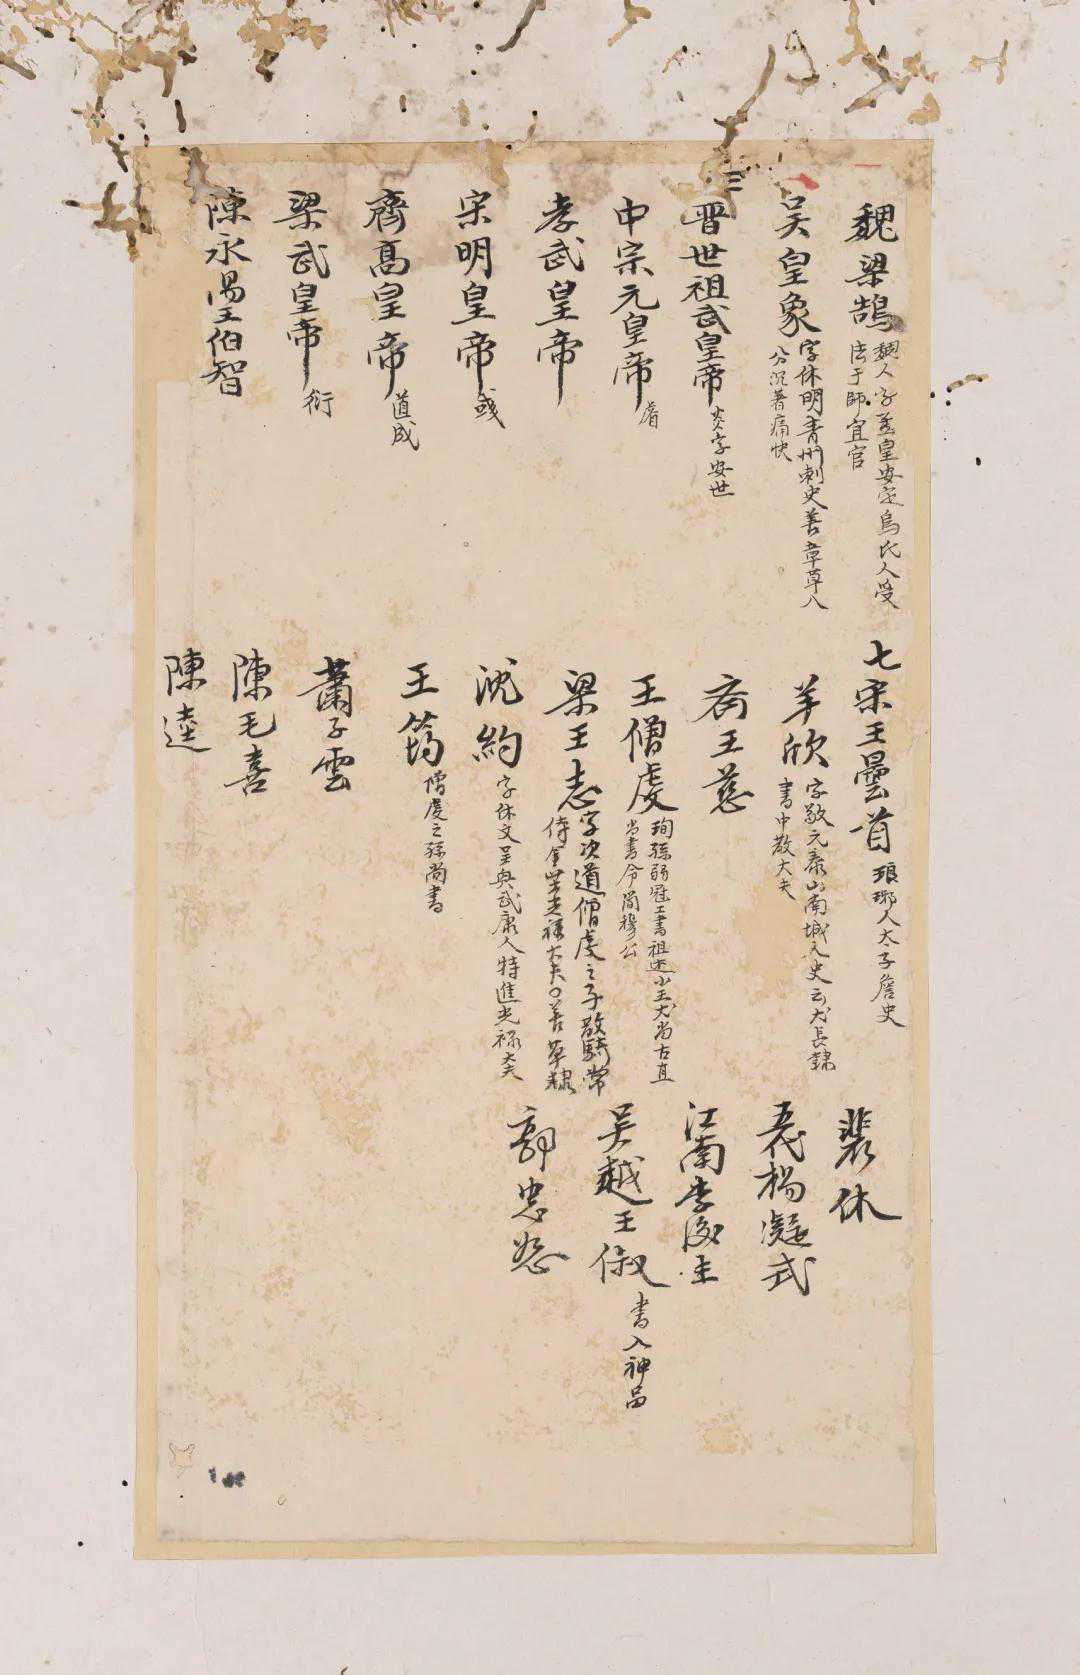 魏梁鵠
魏人字孟皇安定烏氏人受
法于師宜官
吴皇象
字休明青州刺史善章草八
八分沉著痛快
三
晋世祖武皇帝
炎字安世
中宗元皇帝
睿
孝武皇帝
宋明皇帝
彧
齊高皇帝
道成
梁武皇帝
衍
陳永陽王伯智
七
宋王曇首
琅琊人太子詹史
羊欣
字敬元泰山南城人史云尤長隸
書中散大夫
齊王慈
王僧虔
珣孫弱冠工書祖述小王尤尚古直
尚書令簡穆公
梁王志
字次道僧虔之子散騎常
侍金紫光祿大夫善草隸
沈約
字休文吴興武康人特進光祿大夫
王筠
僧虔之孫尚書
蕭子雲
陳毛喜
陳逵
裴休
五代楊凝式
江南李後主
吴越王俶
書入神品
郭忠恕